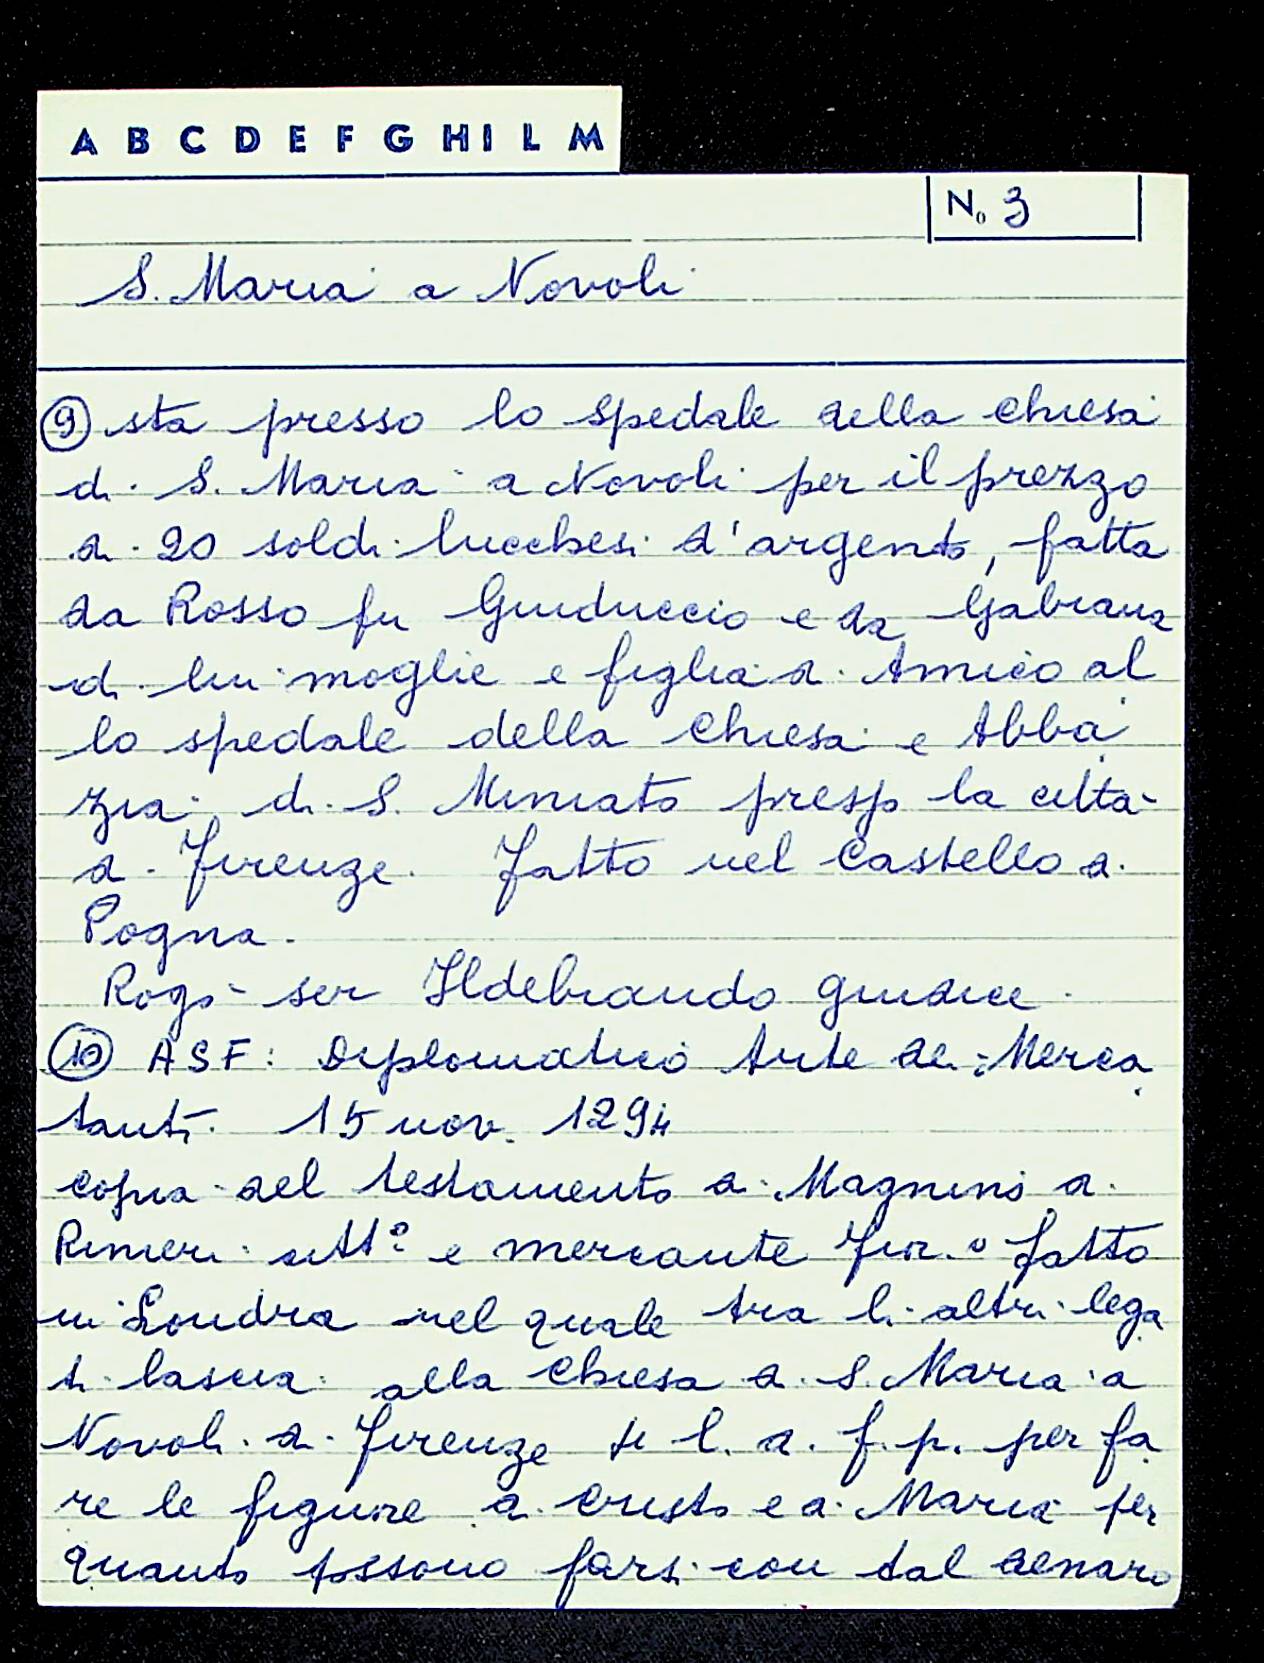 A B C D E F G H I L M
No 3
S. Maria a Novoli
9 sta presso lo spedale della chiesa
di S. Maria a Novoli per il prezzo
di 20 soldi lucchesi d'argento, fatta
da Rosso fu Guiduccio e da
di lui moglie e figlia di Amico al
lo spedale della chiesa e Abba
zia di S. Miniato presso la città
di Firenze. Fatto nel castello di
Pogna.
Rogò ser Ildebrando giudice.
10 ASF: Diplomatico Arte dei Merca
tanti. 15 nov. 1294
copia del testamento di Magnino di
Rinieri e mercante fior.o fatto
in Londra nel quale tra li altri lega
ti lascia alla chiesa di S. Maria a
Novoli di Firenze l. di f. p. per fa
re le figure di Cristo e di Maria per
quanto possono farsi con tal denaro